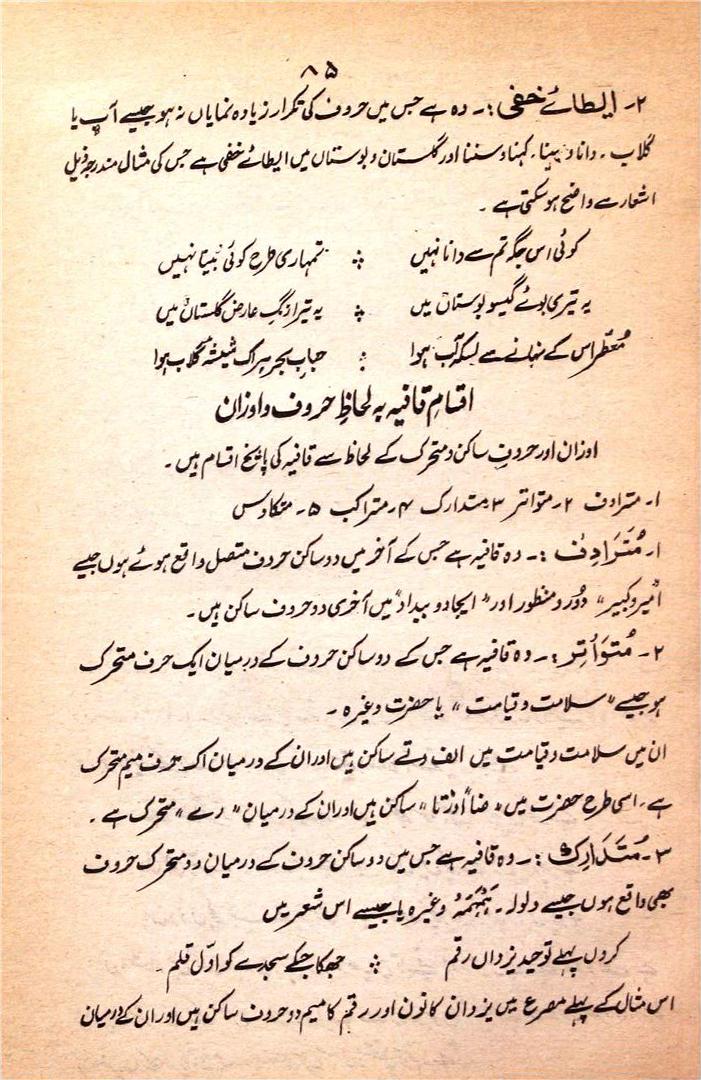 ۸۵
۲۔ ایطائے خفی :۔ وہ ہے جس میں حروف کی تکرار زیادہ نمایاں نہ ہو جیسے آب یا
گلاب ۔ دانا و بینا ۔ کہنا و سننا اور گلستان و بوستاں میں ایطائے خفی ہے جس کی مثال مندرجہ ذیل
اشعار سے واضح ہو سکتی ہے ۔
کوئی اس جگہ تم سے دانا نہیں ؞ تمہاری طرح کوئی بینا نہیں
یہ تیری بوئے گیسو بوستاں میں ؞ یہ تیرا رنگِ عارض گلستاں میں
مُعطّر اس کے نہانے سے بسکہ آب ہوا ؞ حبابِ بحر ہر اک شیشۂ گلاب ہوا
اقسامِ قافیہ بہ لحاظِ حروف و اوزان
اوزان اور حروفِ ساکن و متحرک کے لحاظ سے قافیہ کی پانچ اقسام ہیں ۔
۱۔ مترادف ۲۔ متواتر ۳۔ متدارک ۴۔ متراکب ۵۔ متکاوس
۱۔ مُتَرَادِف :۔ وہ قافیہ ہے جس کے آخر میں دو ساکن حروف متصل واقع ہوئے ہوں جیسے
"امیر و کبیر" دُور و منظور اور "ایجاد و بیداد" میں آخری دو حروف ساکن ہیں ۔
۲۔ مُتَوَاتِر :۔ وہ قافیہ ہے جس کے دو ساکن حروف کے درمیان ایک حرف متحرک
ہو جیسے "سلامت و قیامت" یا حضرت وغیرہ ۔
ان میں سلامت و قیامت میں الف و تے ساکن ہیں اور ان کے درمیان اک حرف میم متحرک
ہے ۔ اسی طرح حضرت میں "ضا" اور "تا" ساکن ہیں اور ان کے درمیان "رے" متحرک ہے ۔
۳۔ مُتَدَارِک :۔ وہ قافیہ ہے جس میں دو ساکن حروف کے درمیان دو متحرک حروف
بھی واقع ہوں جیسے ولولہ ۔ ہَمْہَمَہْ وغیرہ یا جیسے اس شعر میں
کروں پہلے توحید یزداں رقم ؞ جھکا جسکے سجدے کو اوّل قلم ۔
اس مثال کے پہلے مصرع میں یزدان کا نون اور رقم کا میم دو حروف ساکن ہیں اور ان کے درمیان